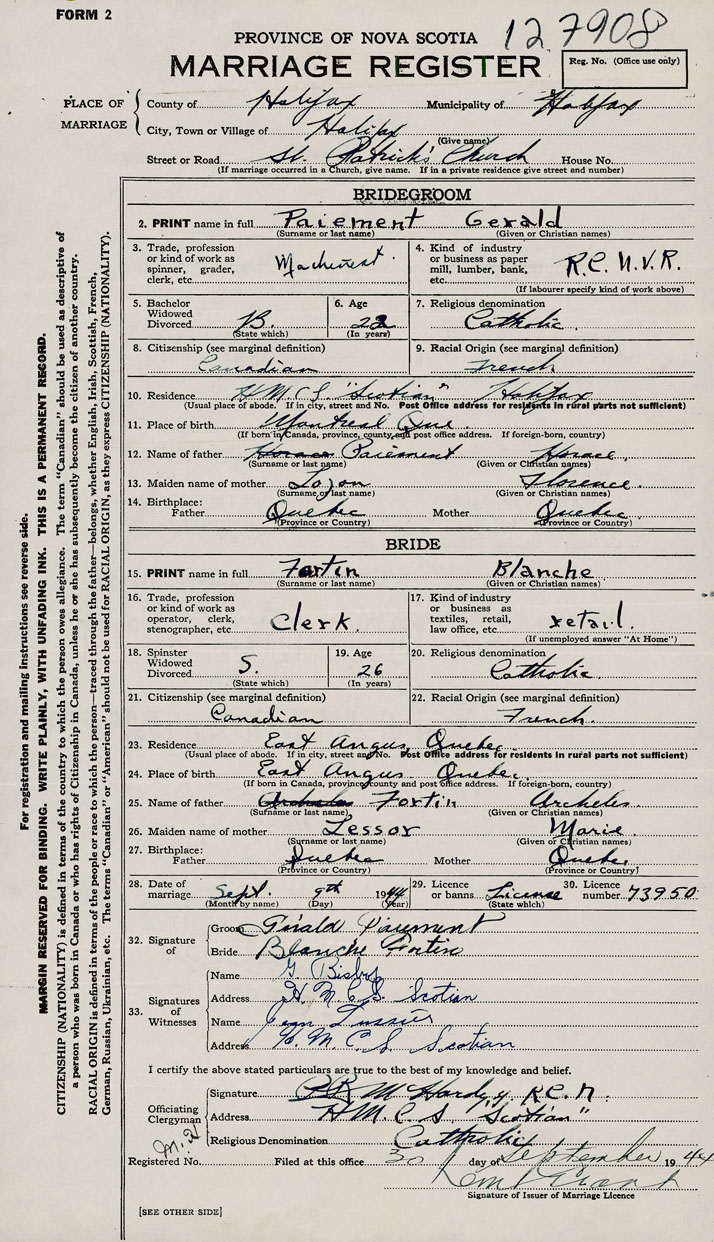 FORM 2
127908
PROVINCE OF NOVA SCOTIA
MARRIAGE REGISTER
Reg. No. (Office use only)
PLACE OF MARRIAGE
County of Halifax Municipality of Halifax
City, Town or Village of Halifax
(Give name)
Street or Road St. Patrick's Church House No.
(If marriage occurred in a Church, give name. If in a private residence give street and number)
BRIDEGROOM
2. PRINT name in full Paiement Gerald
(Surname or last name) (Given or Christian names)
3. Trade, profession or kind of work as spinner, grader, clerk, etc. Machinest.
4. Kind of industry or business as paper mill, lumber, bank, etc. R.C.N.V.R.
(If labourer specify kind of work above)
5. Bachelor Widowed Divorced B.
(State which)
6. Age 22
(In years)
7. Religious denomination Catholic.
8. Citizenship (see marginal definition) Canadian
9. Racial Origin (see marginal definition) French
10. Residence H.M.C.S. "Scotian" Halifax
(Usual place of abode. If in city, street and No. Post Office address for residents in rural parts not sufficient)
11. Place of birth Montreal Que.
(If born in Canada, province, county and post office address. If foreign-born, country)
12. Name of father Horace Paiement Horace.
(Surname or last name) (Given or Christian names)
13. Maiden name of mother Florence.
(Surname or last name) (Given or Christian names)
14. Birthplace: Father Quebec Mother Quebec.
(Province or Country) (Province or Country)
BRIDE
15. PRINT name in full Fortin Blanche
(Surname or last name) (Given or Christian names)
16. Trade, profession or kind of work as operator, clerk, stenographer, etc. Clerk.
17. Kind of industry or business as textiles, retail, law office, etc. retail.
(If unemployed answer "At Home")
18. Spinster Widowed Divorced S.
(State which)
19. Age 26
(In years)
20. Religious denomination Catholic.
21. Citizenship (see marginal definition) Canadian
22. Racial Origin (see marginal definition) French.
23. Residence East Angus, Quebec.
(Usual place of abode. If in city, street and No. Post Office address for residents in rural parts not sufficient)
24. Place of birth East Angus. Quebec.
(If born in Canada, province, county and post office address. If foreign-born, country)
25. Name of father Fortin Archeles.
(Surname or last name) (Given or Christian names)
26. Maiden name of mother Lessor Marie.
(Surname or last name) (Given or Christian names)
27. Birthplace: Father Quebec Mother Quebec
(Province or Country) (Province or Country)
28. Date of marriage Sept. 9th 1944
(Month by name) (Day) (Year)
29. Licence or banns License
(State which)
30. Licence number 73950
32. Signature of
Groom Gérald Paiement
Bride Blanche Fortin
33. Signatures of Witnesses
Name G. Bishop
Address H.M.C.S. Scotian
Name Jean Lussier
Address H.M.C.S. Scotian
I certify the above stated particulars are true to the best of my knowledge and belief.
Officiating Clergyman
Signature Hardy, R.C.N.
Address H.M.C.S "Scotian"
Religious Denomination Catholic
Registered No. Filed at this office 30 day of September 1944
Signature of Issuer of Marriage Licence
[SEE OTHER SIDE]
For registration and mailing instructions see reverse side.
MARGIN RESERVED FOR BINDING. WRITE PLAINLY, WITH UNFADING INK. THIS IS A PERMANENT RECORD.
CITIZENSHIP (NATIONALITY) is defined in terms of the country to which the person owes allegiance. The term "Canadian" should be used as descriptive of
a person who was born in Canada or who has rights of Citizenship in Canada, unless he or she has subsequently become the citizen of another country.
RACIAL ORIGIN is defined in terms of the people or race to which the person—traced through the father—belongs, whether English, Irish, Scottish, French,
German, Russian, Ukrainian, etc. The terms "Canadian" or "American" should not be used for RACIAL ORIGIN, as they express CITIZENSHIP (NATIONALITY).